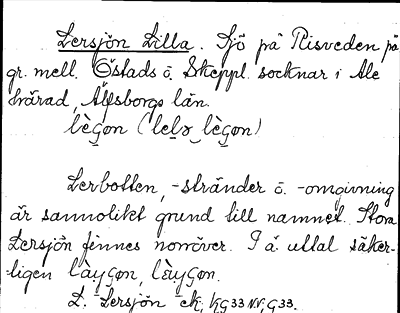 Lersjön Lilla. Sjö på Risveden på
gr. mell. Östads o. Skeppl. socknar i Ale
härad, Älfsborgs län.
lèçon (lelə lèçon)
Lerbotten, -stränder o. -omgivning
är sannolikt grund till namnet. Stora
Lersjön finnes norröver. I ä. uttal säker-
ligen
L. Lersjön ek,